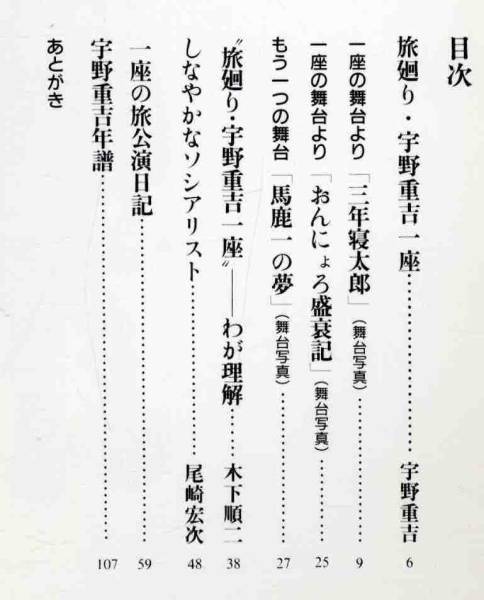 目次
旅廻り・宇野重吉一座……………………宇野重吉 6
一座の舞台より「三年寝太郎」(舞台写真)……………… 9
一座の舞台より「おんにょろ盛衰記」(舞台写真)………… 25
もう一つの舞台「馬鹿一の夢」(舞台写真)……………… 27
〝旅廻り・宇野重吉一座〟――わが理解……木下順二 38
しなやかなソシアリスト……………………尾崎宏次 48
一座の旅公演日記……………………………………… 59
宇野重吉年譜…………………………………………… 107
あとがき